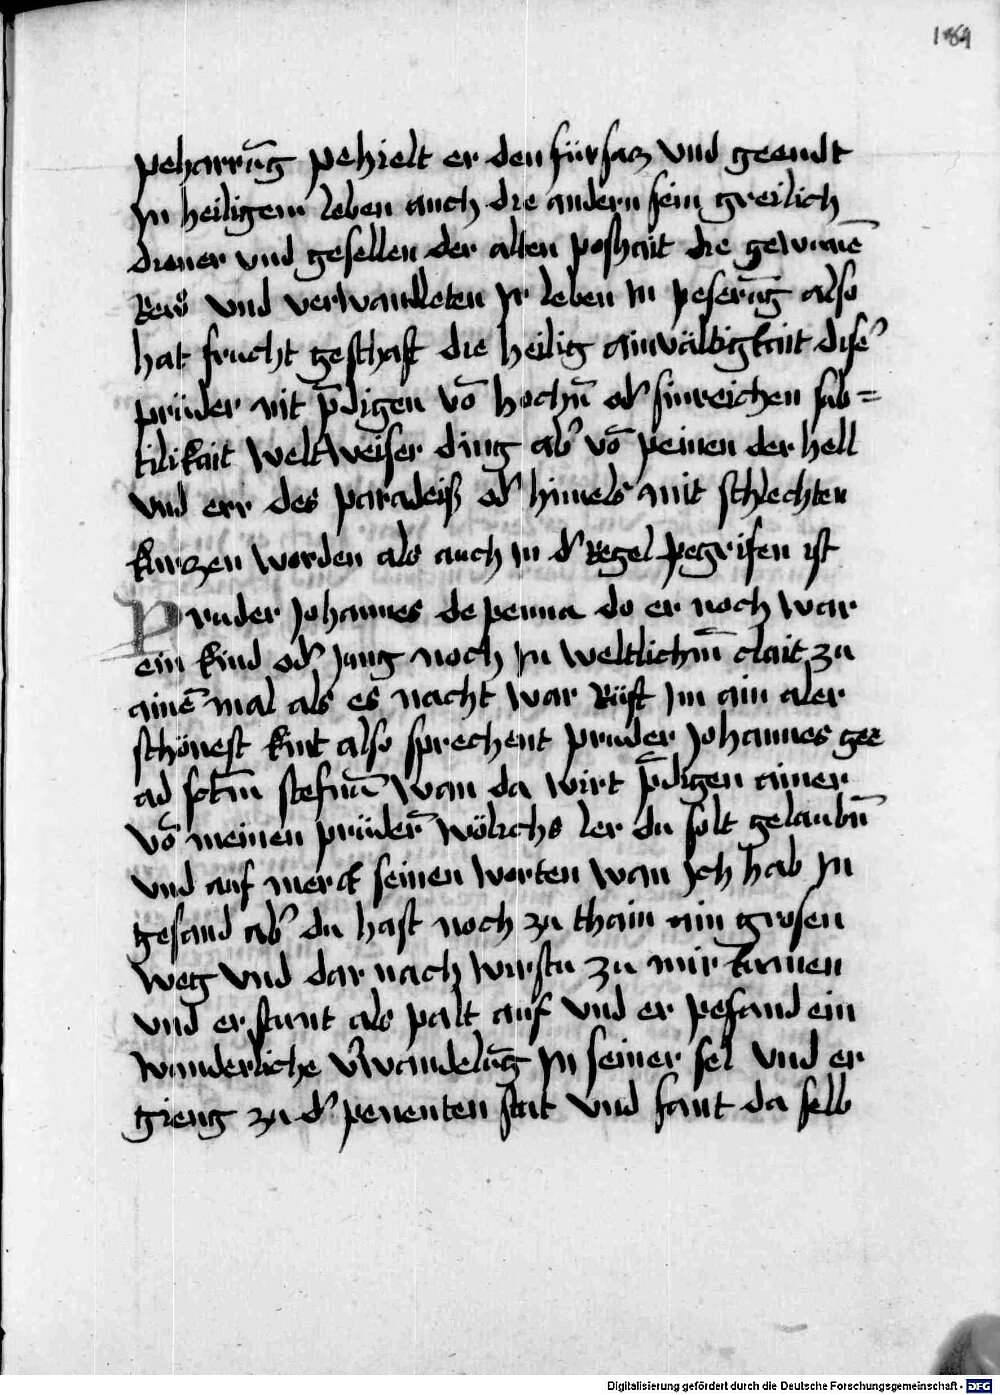 189
peharrūg pehielt er den fürsacz vnd geendt
Jn heiligem leben auch die andern sein greilich
diener vnd gesellen der alten poshait die gewunē
Rew vnd verwandleten Jr leben Jn peserūg also
hat frucht geschaft die heilig ainvältigkait diser
prüder nit p̄digen vō hochn̄ od' sinreichen sub=
tilikait weltweiser ding ab' vō peinen der hell
vnd err des paradeiß od' himels mit schlechten
kurzen worden als auch Jn d' Regel pegrifen ist
Pruder Johannes de penna do er noch war
ein kind od' Jung noch Jn weltlichm̄ clait zu
ainē mal als es nacht war Rüft Jm ain aler
schönest kint also sprechent pruder Johannes gee
ad sctm̄ stefnū wan da wirt p̄digen ainer
vō meinen prüdern̄ wölichs ler du solt gelaubn̄
vnd auf merck seinen worten wan Jch hab Jn
gesand ab' du hast noch zu thain ain grosen
weg vnd dar nach wirstu zu mir kumen
vnd er stunt als palt auf vnd er pefand ein
wunderliche v'wandelūg Jn seiner sel vnd er
gieng zu d' penenten stat vnd fant da selb
Digitalisierung gefördert durch die Deutsche Forschungsgemeinschaft - DFG